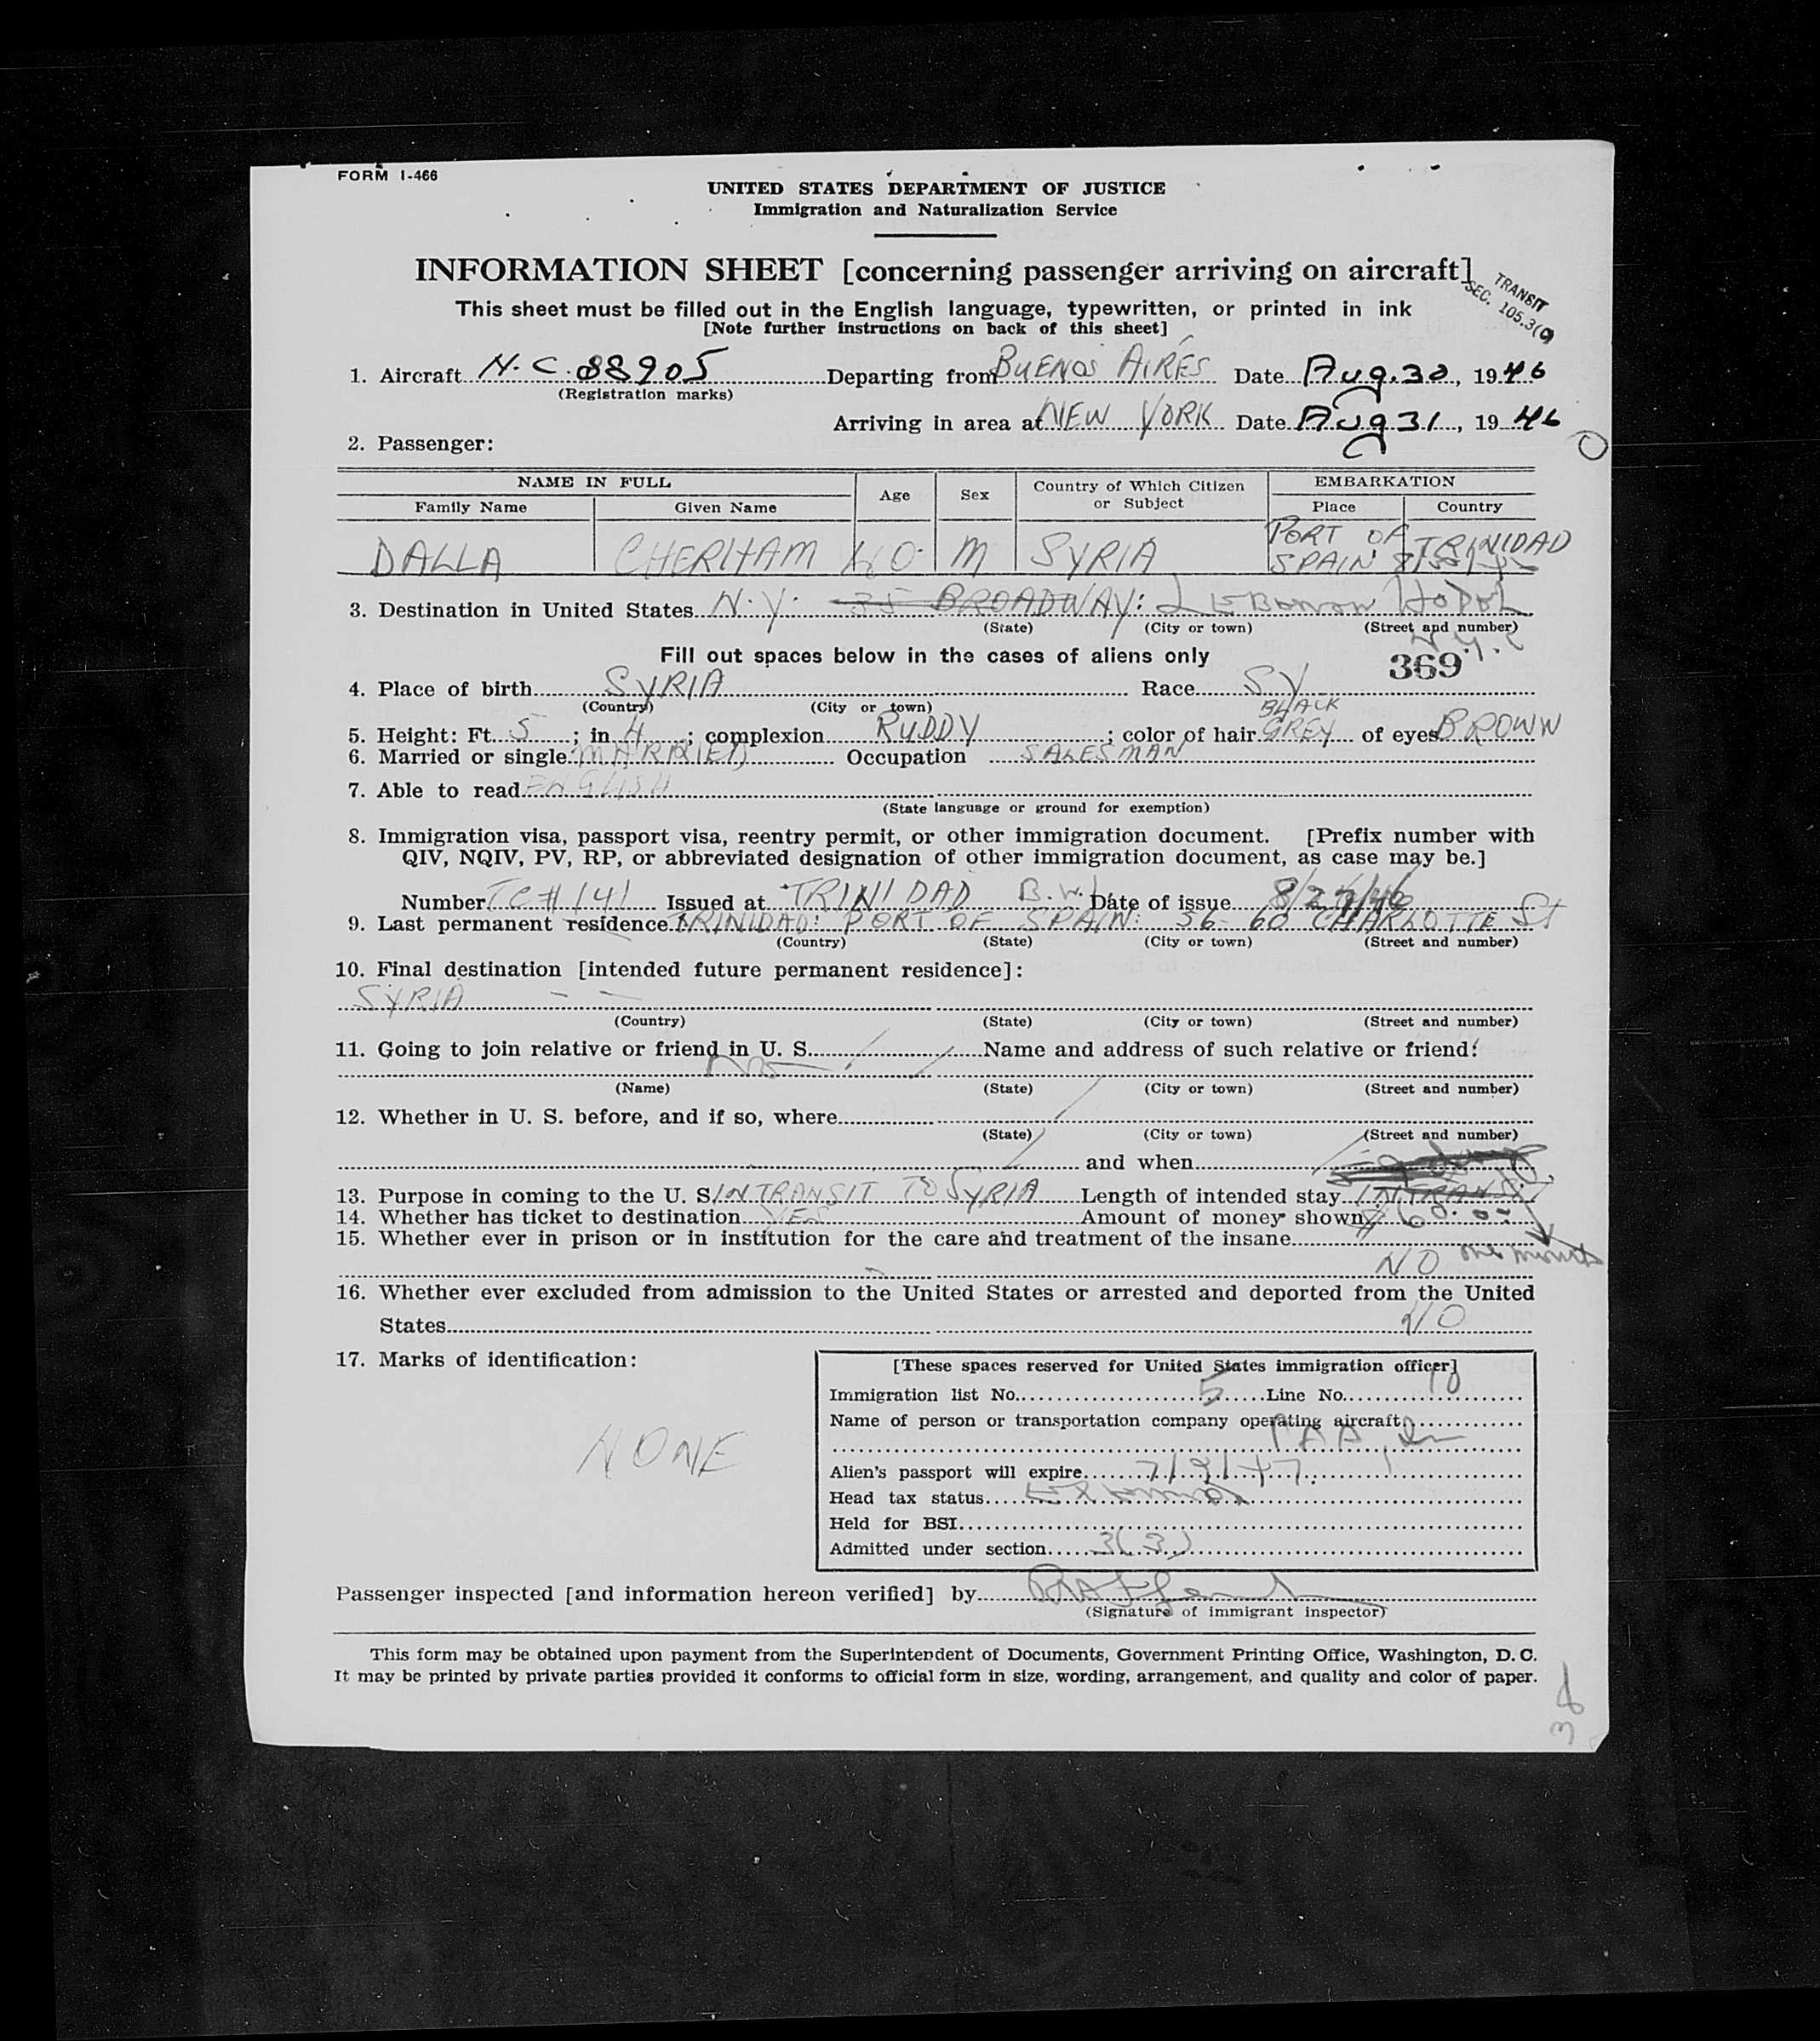 FORM I-466
UNITED STATES DEPARTMENT OF JUSTICE
Immigration and Naturalization Service
INFORMATION SHEET [concerning passenger arriving on aircraft]
TRANSIT
SEC. 105.3(c)
This sheet must be filled out in the English language, typewritten, or printed in ink
[Note further instructions on back of this sheet]
1. Aircraft N.C. 88905 Departing from BUENOS AIRES Date Aug. 30, 1946
(Registration marks)
Arriving in area at NEW YORK Date Aug 31, 1946
2. Passenger:
NAME IN FULL Age Sex Country of Which Citizen or Subject EMBARKATION
Family Name Given Name Place Country
DALLA CHERHAM 40 M SYRIA PORT OF SPAIN TRINIDAD
3. Destination in United States N.Y. 35 BROADWAY: LEBANON HOTEL
(State) (City or town) (Street and number)
N.Y.C
Fill out spaces below in the cases of aliens only
369
4. Place of birth SYRIA Race SY
(Country) (City or town)
BLACK
5. Height: Ft. 5; in 4; complexion RUDDY; color of hair GREY of eyes BROWN
6. Married or single MARRIED Occupation SALESMAN
7. Able to read ENGLISH
(State language or ground for exemption)
8. Immigration visa, passport visa, reentry permit, or other immigration document. [Prefix number with
QIV, NQIV, PV, RP, or abbreviated designation of other immigration document, as case may be.]
Number TC# 141 Issued at TRINIDAD B.W.I. Date of issue 8/27/46
9. Last permanent residence TRINIDAD: PORT OF SPAIN: 56-60 CHARLOTTE St
(Country) (State) (City or town) (Street and number)
10. Final destination [intended future permanent residece]:
SYRIA - -
(Country) (State) (City or town) (Street and number)
11. Going to join relative or friend in U. S. Name and address of such relative or friend:
NO
(Name) (State) (City or town) (Street and number)
12. Whether in U. S. before, and if so, where
(State) (City or town) (Street and number)
and when
13. Purpose in coming to the U. S. IN TRANSIT TO SYRIA Length of intended stay IN TRANSIT
14. Whether has ticket to destination YES Amount of money shown $ 60.00
15. Whether ever in prison or in institution for the care and treatment of the insane
NO one month
16. Whether ever excluded from admission to the United States or arrested and deported from the United
States NO
17. Marks of identification:
NONE
[These spaces reserved for United States immigration officer]
Immigration list No. 5 Line No. 10
Name of person or transportation company operating aircraft
PAA
Alien's passport will expire 7/9/47.
Head tax status
Held for BSI
Admitted under section 3(3)
Passenger inspected [and information hereon verified] by
(Signature of immigrant inspector)
This form may be obtained upon payment from the Superintendent of Documents, Government Printing Office, Washington, D. C.
It may be printed by private parties provided it conforms to official form in size, wording, arrangement, and quality and color of paper.